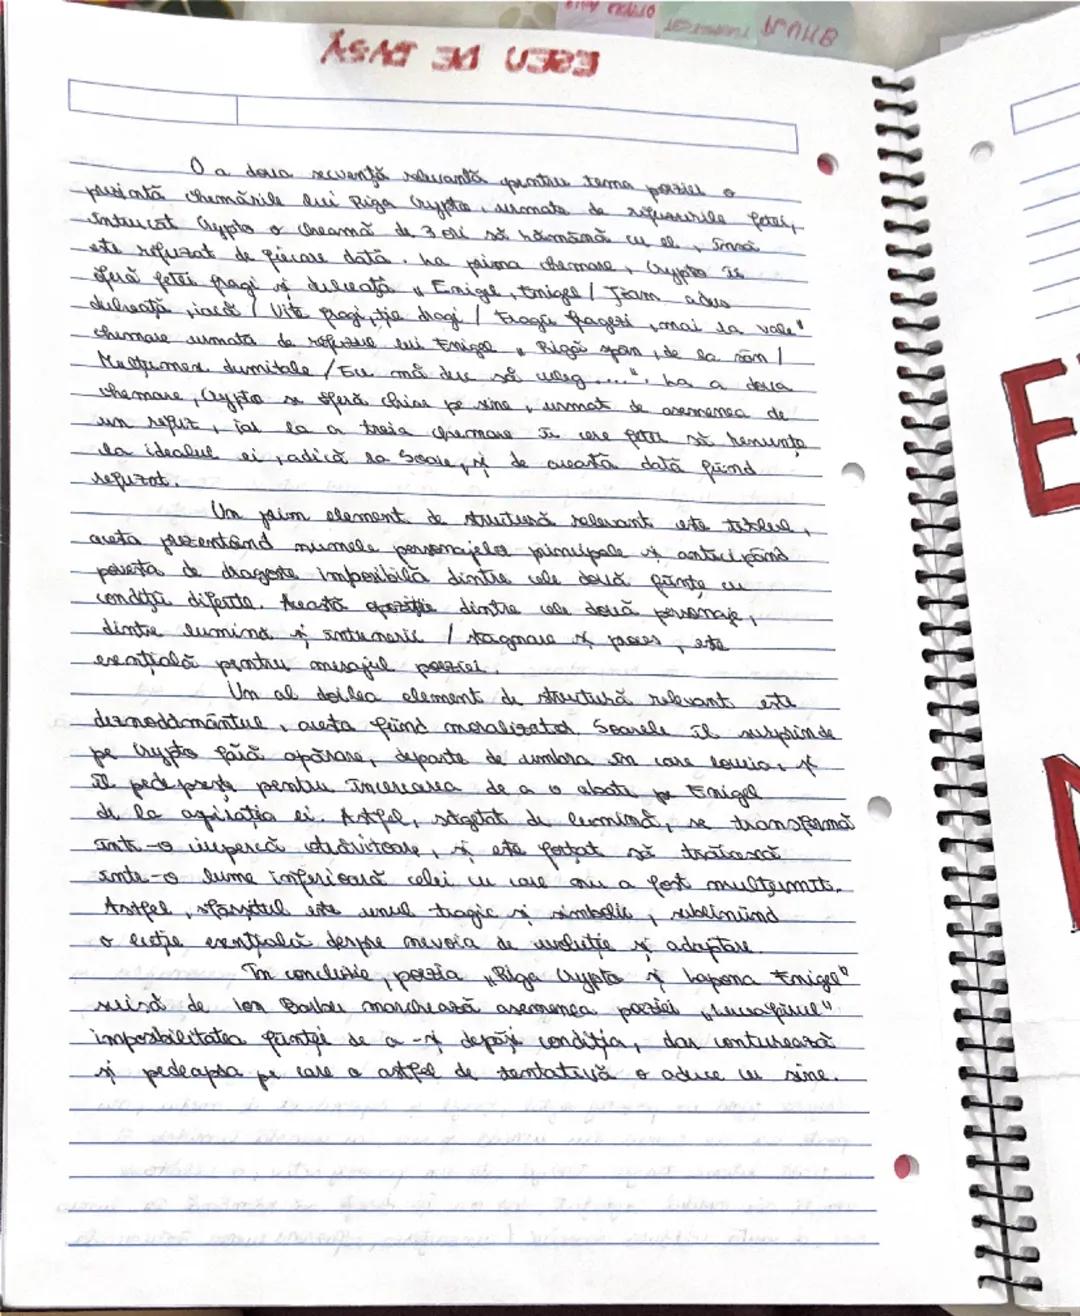 O a doua secvență relevantă pentru tema poeziei o
prezintă chemările lui Riga Crypto, urmate de refuzurile fetei,
întrucât Crypto o cheamă de 3 ori să rămână cu el, însă
este refuzat de fiecare dată. La prima chemare, Crypto îi
oferă fetei fragi și dulceață „Enigel, Enigel / Ți-am adus
dulceață, iacă / Uite fragi, ție dragi / Fragii fragezi, mai la vale"
chemare urmată de refuzul lui Enigel „Rigă spân, de la sân /
Mulțumesc dumitale / Eu mă duc să culeg ...". La a doua
chemare, Crypto se oferă chiar pe sine, urmat de asemenea de
un refuz, iar la a treia chemare îi cere fetei să renunțe
la idealul ei, adică la Soare, și de această dată fiind
refuzat.
Un prim element de structură relevant este titlul,
acesta prezentând numele personajelor principale și anticipând
povestea de dragoste imposibilă dintre cele două ființe cu
condiții diferite. Această opoziție dintre cele două personaje,
dintre lumină și întuneric / stagnare și proces, este
esențială pentru mesajul poeziei.
Un al doilea element de structură relevant este
deznodământul, acesta fiind moralizator. Soarele îl surprinde
pe Crypto fără apărare, departe de umbra în care locuia, și
îl pedepsește pentru încercarea de a o abate pe Enigel
de la aspirația ei. Astfel, săgetat de lumină, se transformă
într-o ciupercă otrăvitoare, și este forțat să trăiască
într-o lume inferioară celei cu care nu a fost mulțumit.
Astfel, sfârșitul este unul tragic și simbolic, subliniind
o lecție esențială despre nevoia de evoluție și adaptare.
În concluzie, poezia „Riga Crypto și Lapona Enigel"
scrisă de Ion Barbu marchează asemenea poeziei „Luceafărul"
imposibilitatea ființei de a-și depăși condiția, dar conturează
și pedeapsa pe care o astfel de tentativă o aduce cu sine.